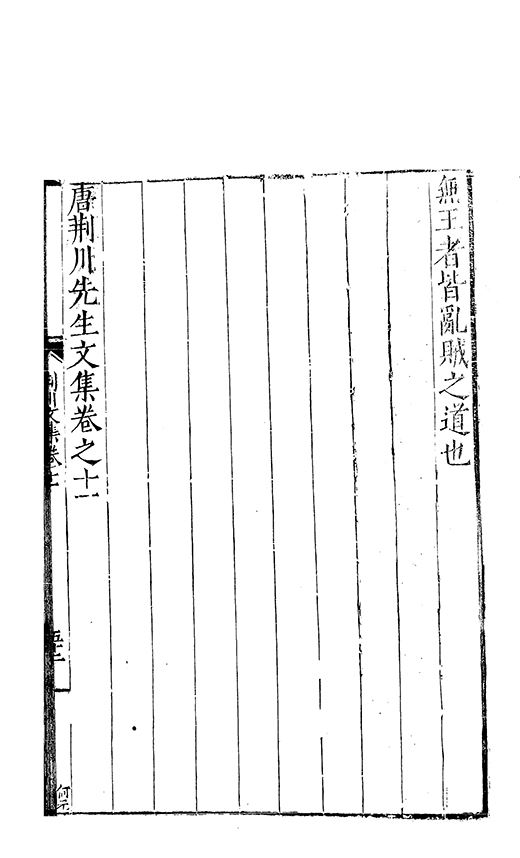 無王者皆亂賊之道也
唐荆川先生文集卷之十一
荆川文集卷十一